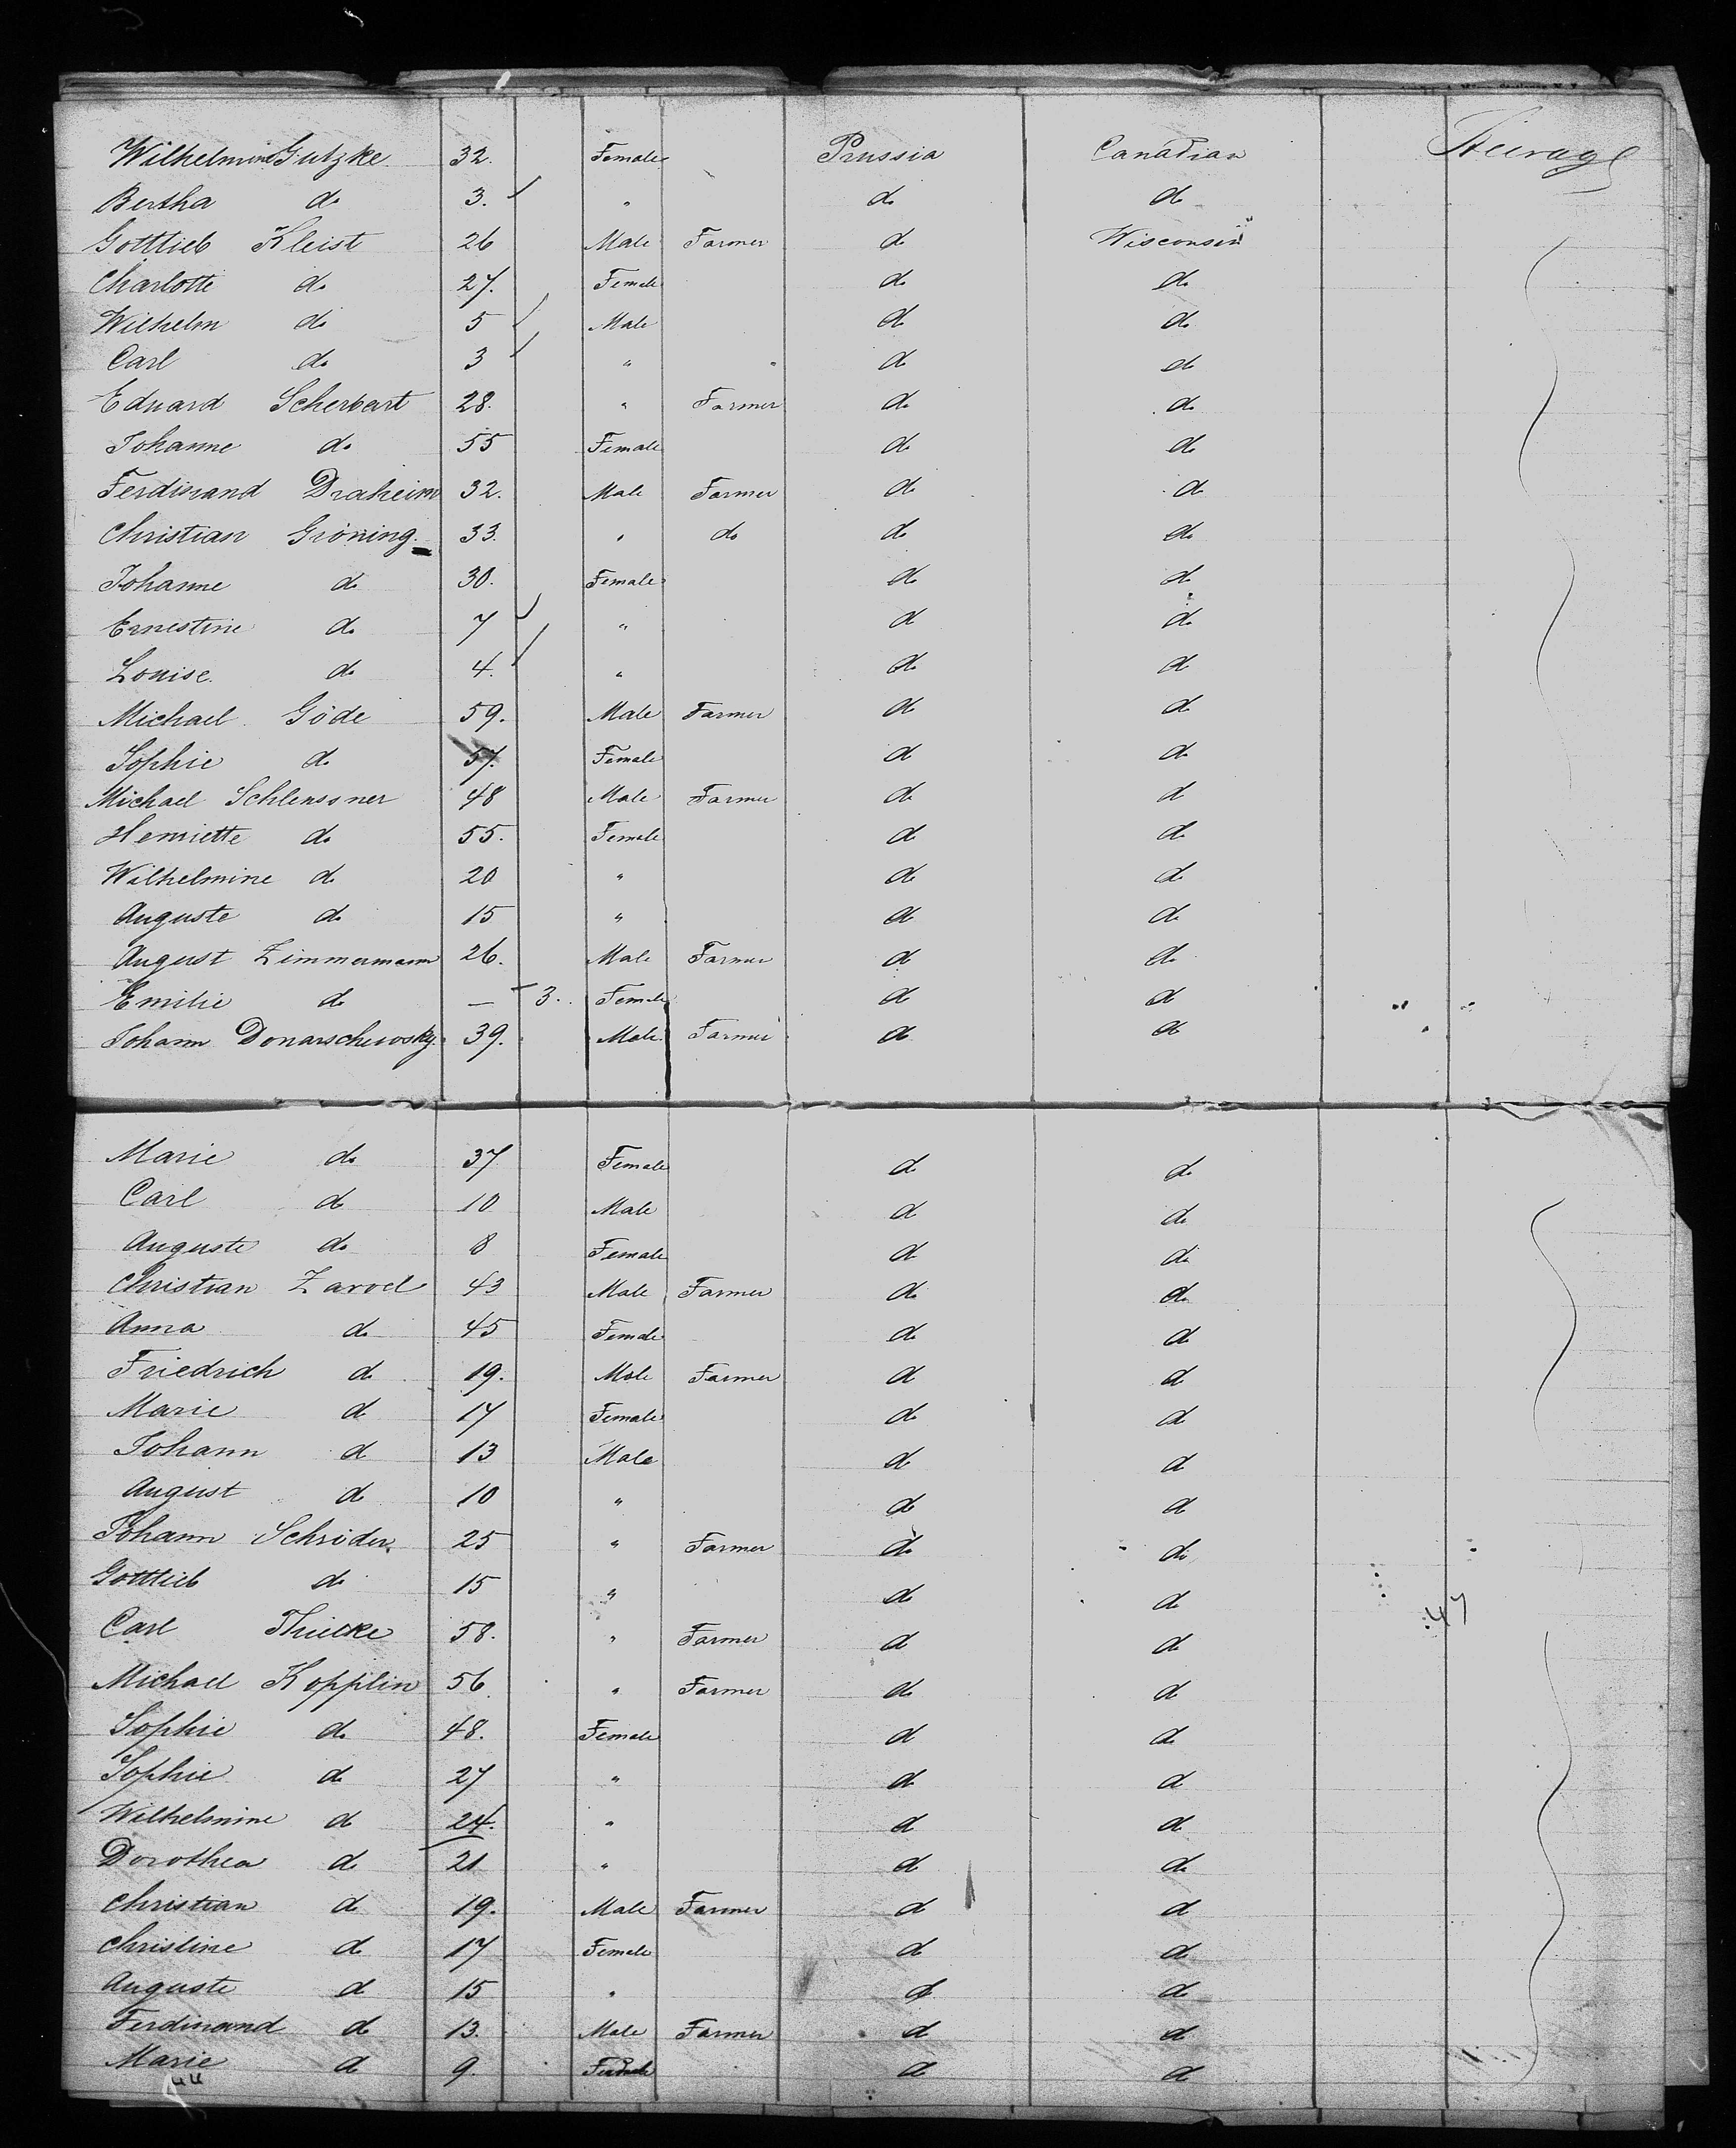 Wilhelmine Gutzke 32. Female Prussia Canadian Steerage
Bertha do 3. " do do
Gottlieb Kleist 26 Male Farmer do Wisconsin
Charlotte do 27. Female do do
Wilhelm do 5 Male do do
Carl do 3 " do do
Eduard Scherbart 28. " Farmer do do
Johanne do 55 Female do do
Ferdinand Draheim 32. Male Farmer do do
Christian Gröning 33. " do do do
Johanne do 30. Female do do
Ernestine do 7 " do do
Louise do 4. " do do
Michael Göde 59. Male Farmer do do
Sophie do 57. Female do do
Michael Schlenssner 48 Male Farmer do do
Henriette do 55. Female do do
Wilhelmine do 20 " do do
Auguste do 15 " do do
August Zimmermann 26. Male Farmer do do
Emilie do — 3. Female do do
Johann Donarschewsky. 39. Male Farmer do do
Marie do 37 Female do do
Carl do 10 Male do do
Auguste do 8 Female do do
Christian Zarod 43 Male Farmer do do
Anna do 45 Female do do
Friedrich do 19. Male Farmer do do
Marie do 17 Female do do
Johann do 13 Male do do
August do 10 " do do
Johann Schröder 25 " Farmer do do
Gottlieb do 15 " do do
47
Carl Thielke 58. " Farmer do do
Michael Kopplin 56 " Farmer do do
Sophie do 48. Female do do
Sophie do 27 " do do
Wilhelmine do 24. " do do
Dorothea do 21 " do do
Christian do 19. Male Farmer do do
Christine do 17 Female do do
Auguste do 15 " do do
Ferdinand do 13. Male Farmer do do
Marie do 9. Female do do
44